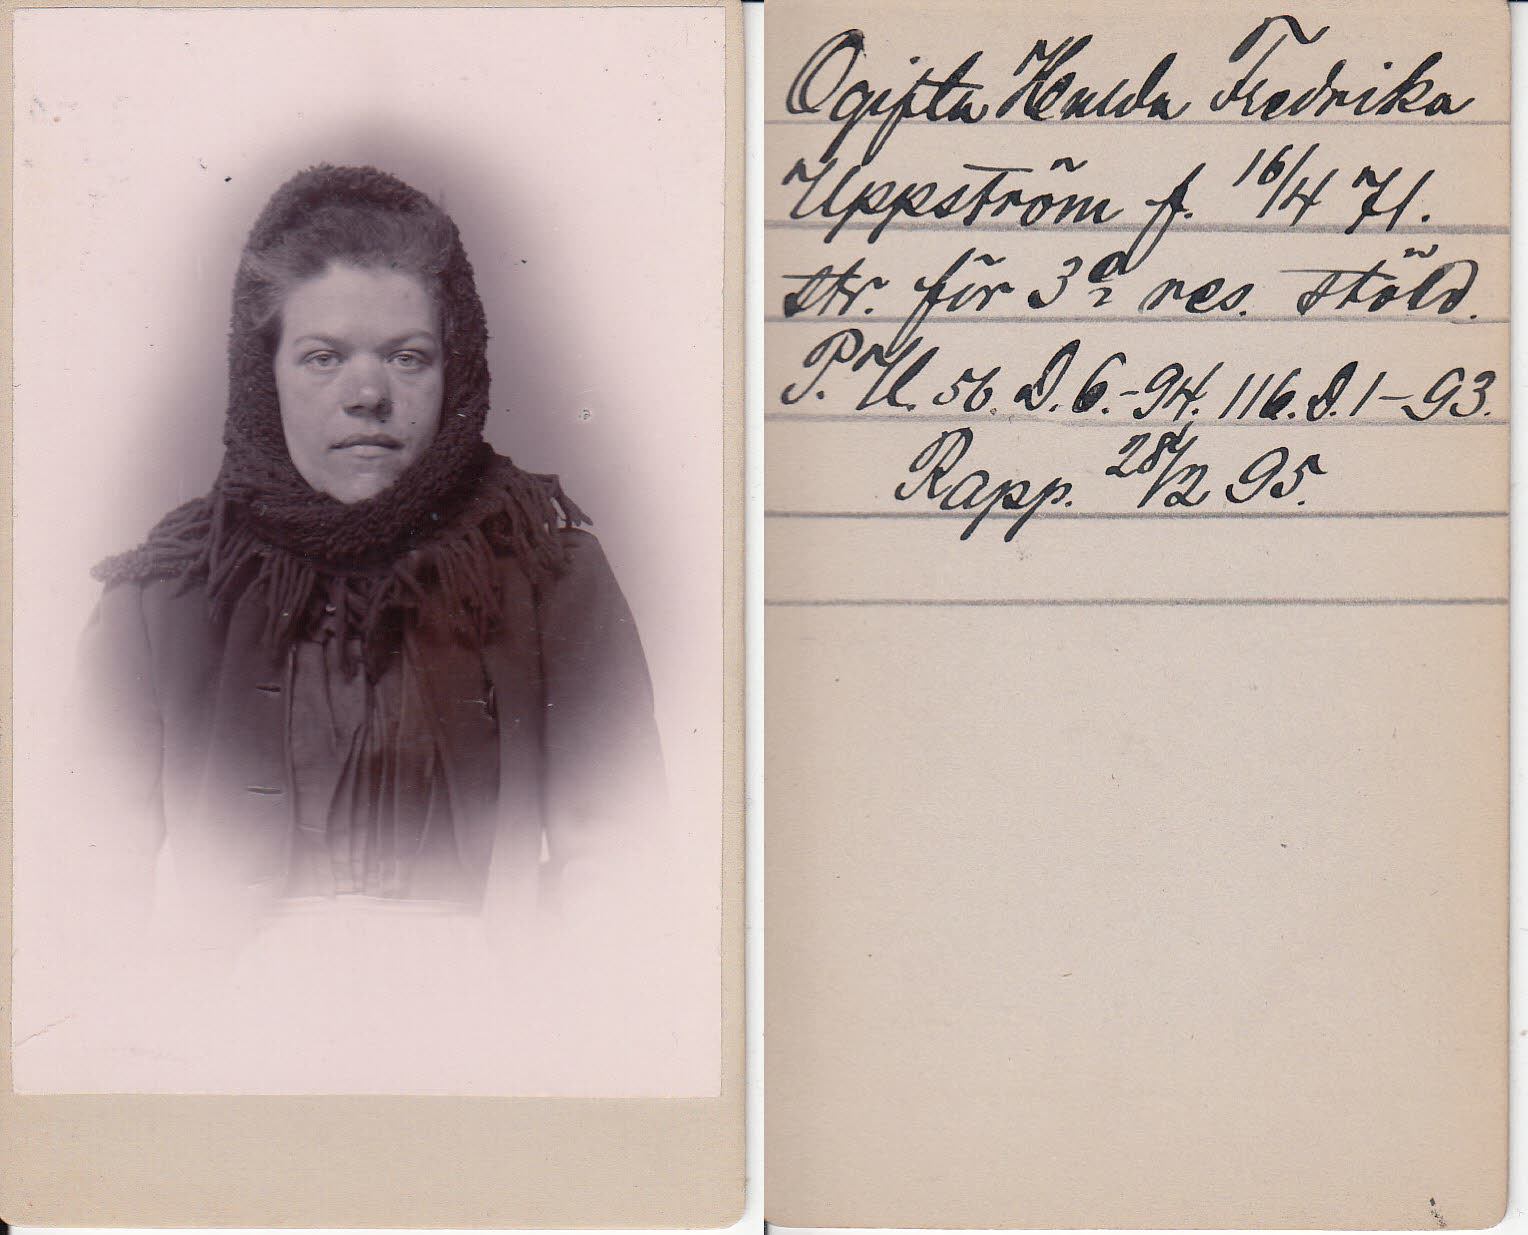 Ogifta Hulda Fredrika
Uppström f. 16/4 71.
str. för 3a res. stöld.
P. U. 56. D. 6.-94. 116. D. 1-93.
Rapp. 28/2 95.